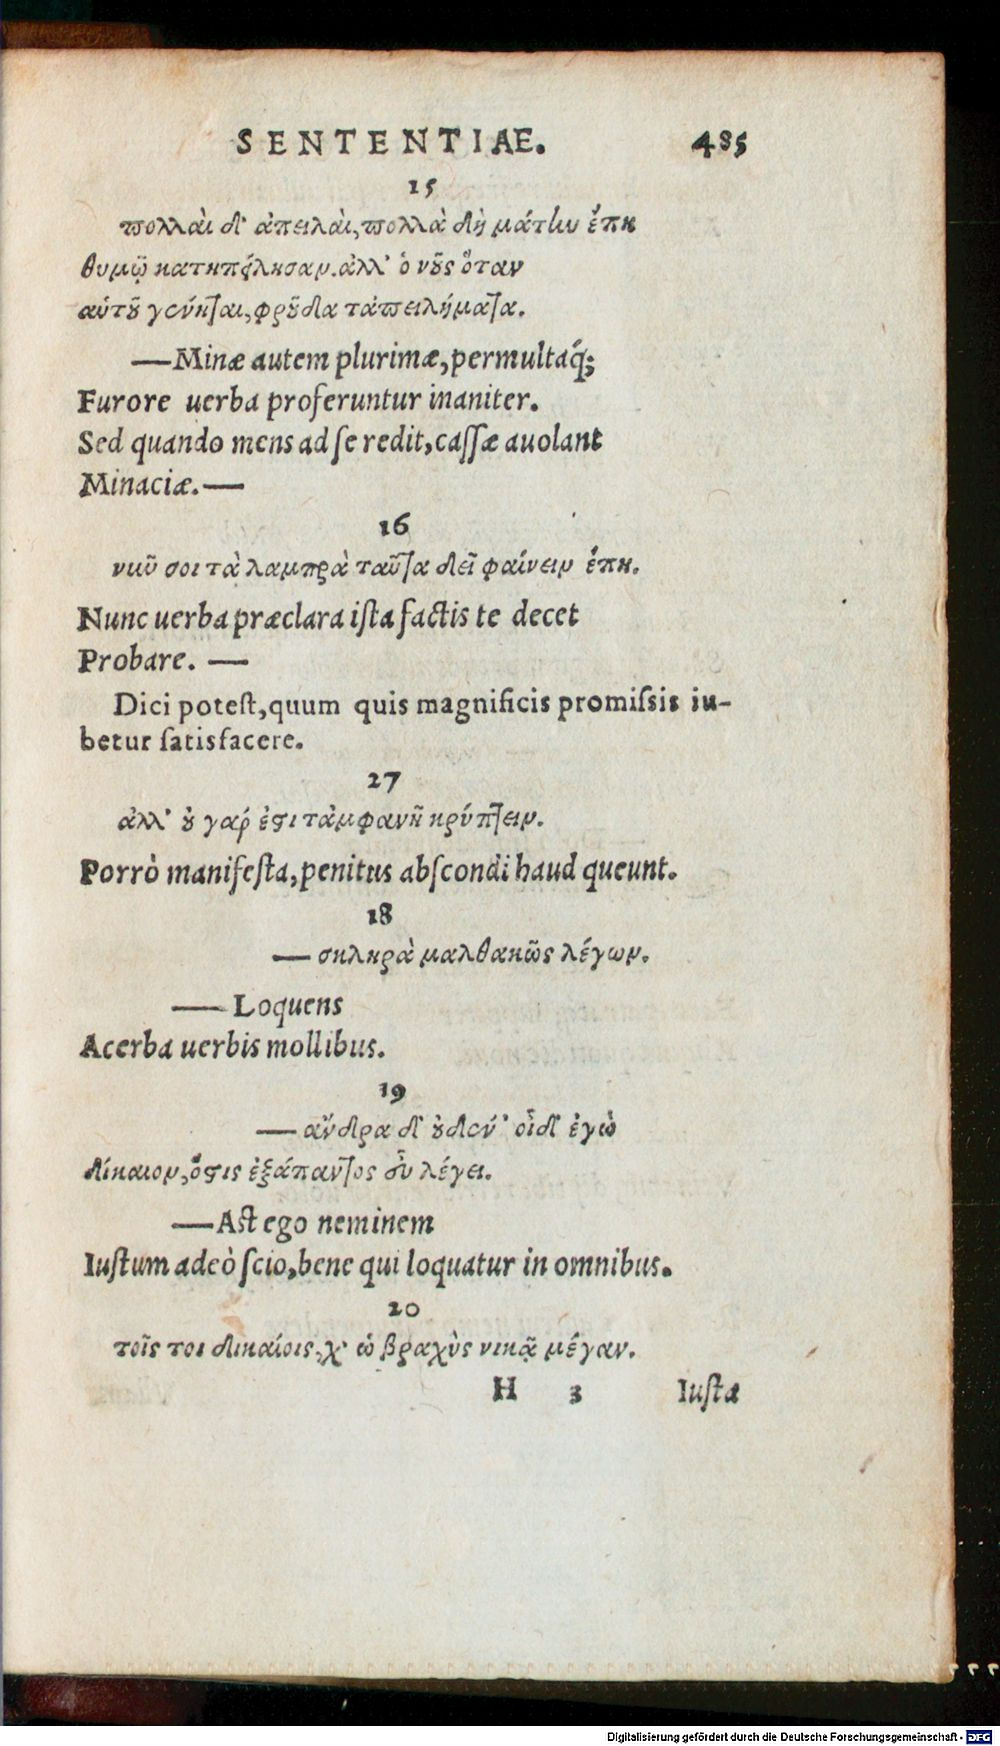 SENTENTIAE. 485
15
πολλαὶ δ' ἀπειλαὶ, πολλὰ δὴ μάτην ἔπη
θυμῷ κατηπείλησαν. ἀλλ' ὁ νοῦς ὅταν
αὑτοῦ γένηται, φροῦδα τἀπειλήματα.
—Minæ autem plurimæ, permultaq́;
Furore uerba proferuntur inaniter.
Sed quando mens ad ſe redit, caſſæ auolant
Minaciæ.—
16
νῦν σοι τὰ λαμπρὰ ταῦτα δεῖ φαίνειν ἔπη.
Nunc uerba præclara iſta factis te decet
Probare. —
Dici poteſt, quum quis magnificis promiſsis iu-
betur ſatisfacere.
27
ἀλλ' οὐ γάρ ἐστι τἀμφανῆ κρύπτειν.
Porrò manifeſta, penitus abſcondi haud queunt.
18
— σκληρὰ μαλθακῶς λέγων.
— Loquens
Acerba uerbis mollibus.
19
— ἄνδρα δ' οὐδέν' οἶδ' ἐγὼ
δίκαιον, ὅστις ἐξάπαντος εὖ λέγει.
—Aſt ego neminem
Iuſtum adeò ſcio, bene qui loquatur in omnibus.
20
τοῖς τοι δικαίοις, χ' ὡ βραχὺς νικᾷ μέγαν.
H 3 Iuſtæ
Digitalisierung gefördert durch die Deutsche Forschungsgemeinschaft - DFG